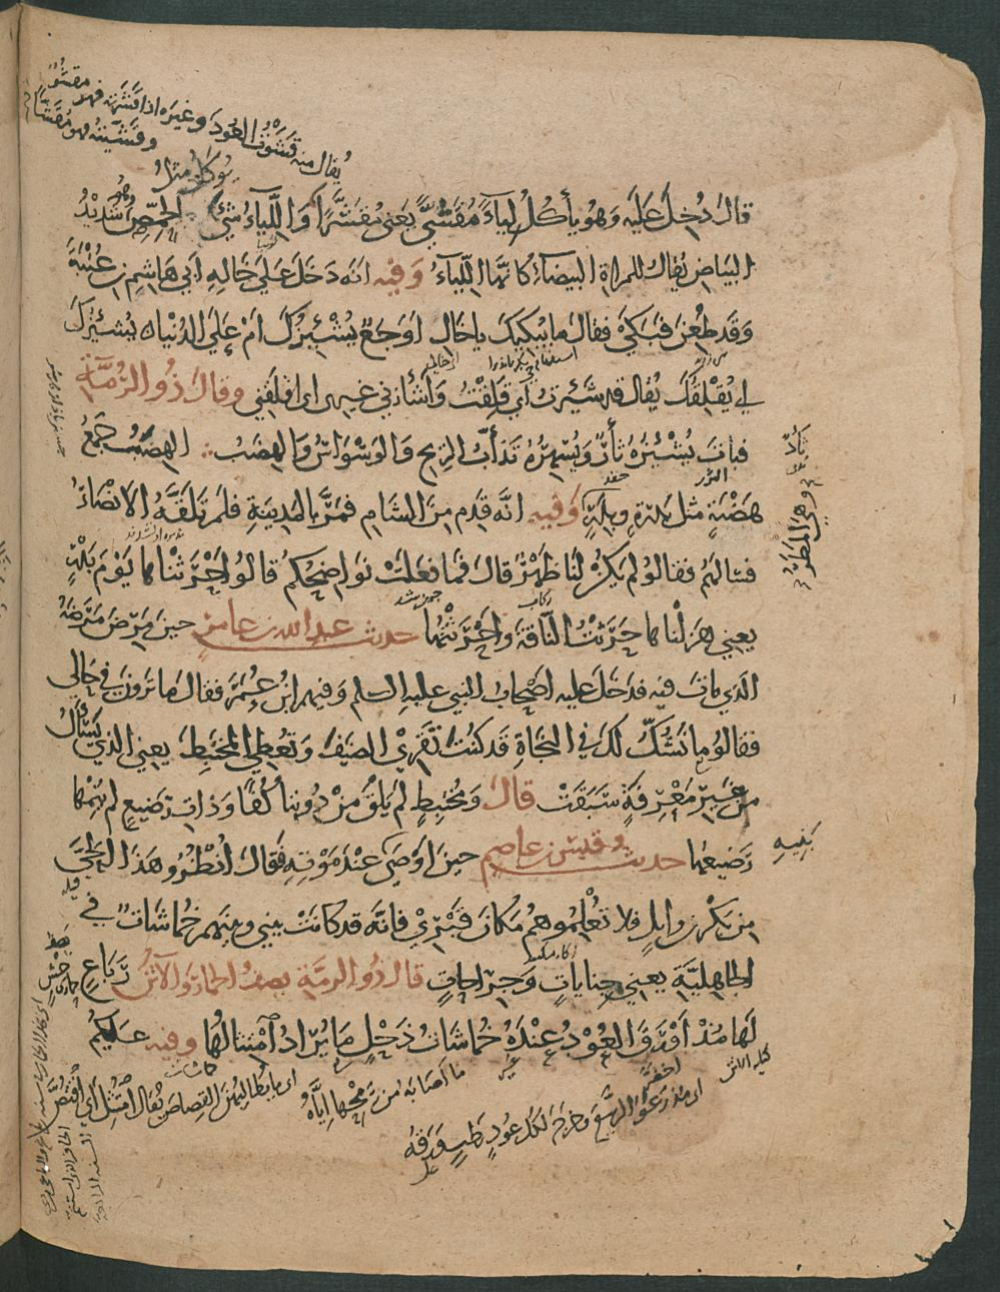 يقال منه قشوت العود وغيره اذا قشرته فهو مقشو
وقشيته فهو مقشا
قال دخل عليه وهو يأكل لياءً مُقَشًّى يعني مُقَشَّرًا واللياءُ شيء كالحِمّص شديدُ
البياض يقال للمراة البيضاء كانها اللياءُ وفيه انه دخل على خاله ابي هاشم بن عتبة
وقد طُعِن فبكى فقال ما يبكيك يا خالِ اوجعٌ يُشْئِزُكَ ام على الدنيا يشئزك
اي يُقْلِقُكَ يقال قد شَئِزتُ اي قَلِقْتُ وأشأزني غيري اي اقلقني وقال ذو الرُّمَّة
فبات يُشْئِزُه ثَأْدٌ ويُسْهِرُه تذأّب الريح والوَسْواسُ والهِضَب الهِضَبُ جمعُ
هَضْبَةٍ مثل بدرة وبِدَرٍ وفيه انه قدم من الشام فمرّ بالمدينة فلم تلقَه الانصارُ
فسالهم فقالوا لم يكن لنا ظهرٌ قال فما فعلت نواضحكم قالوا احرثناها يوم بدرٍ
يعني هزلناها حرثتُ الناقة واحرثتُها حديث عبد الله بن عامر حين مرِض مرضَه
الذي مات فيه فدخل عليه اصحاب النبي عليه السلم وفيهم ابن عُمَرَ فقال ما ترون في حالي
فقالوا ما نشكّ لك في النجاة قد كنت تقري الضيف وتعطي المختبط يعني الذي يسأل
من غير معرفةٍ سبقت قال ومختبطٍ لم يلق من دوننا كُفًا وذات رضيع لم يُنِمْها
رضيعها حديث قيس بن عاصم حين اوصى عند موته فقال انظروا هذا الحيّ
من بكر بن وايل فلا تُعلِموهم مكان قبري فانه قد كانت بيني وبينهم خُماشات في
الجاهلية يعني جنايات وجراحات قال ذو الرمة يصف الحمار والأتن رَباعٍ
لها مُذْ اَوْرَقَ العُوْدُ عنده خُماشاتُ ذَحْلٍ ما يُراد امتثالُها وفيه عليكم
اي ما يطالبهن القصاص يقال امتثل اي اقتصّ
ما اصابه من رمحها اياه
اي منذ رعى الربيع وخرج لكل عود رطب ورقه
ثأد
وهو المطر
بَنِيهِ